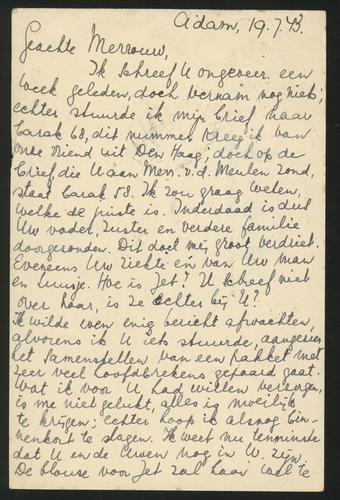 Adam, 19.7.43.
Geachte Mevrouw,
Ik schreef U ongeveer een
week geleden, doch vernam nog niets;
echter stuurde ik mijn brief naar
Barak 68, dit nummer kreeg ik van
onze vriend uit Den Haag; doch op de
brief die U aan Mevr. v.d. Meulen zond,
staat Barak 58. Ik zou graag weten,
welke de juiste is. Inderdaad is dus
Uw vader, zuster en verdere familie
doorgezonden. Dit doet mij groot verdriet.
Eveneens Uw ziekte en van Uw man
en Hoe is Jet? U schreef niet
over haar, is ze echter bij U?
Ik wilde even enig bericht afwachten,
alvorens ik U iets stuurde, aangezien
het samenstellen van een pakket met
zeer veel hoofdbrekens gepaard gaat.
Wat ik voor U had willen verzorgen,
is me niet gelukt, alles is moeilijk
te krijgen; echter hoop ik alsnog bin-
nenkort te slagen. Ik weet nu tenminste
dat U en de Uwen nog in W. zijn.
De blouse voor Jet zal haar wel te